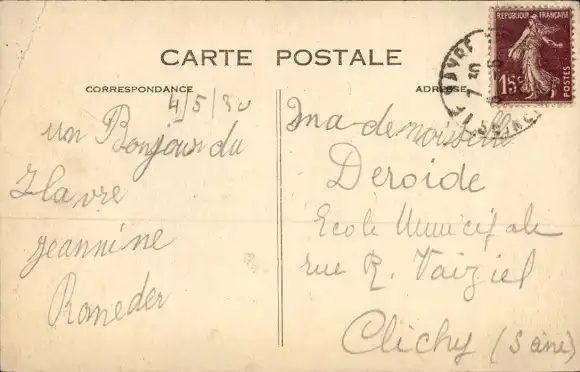 CARTE POSTALE
CORRESPONDANCE
4/5/30
un Bonjour du
Havre
Jeannine
Rameder
ADRESSE
Ma-demoiselle
Deroide
Ecole Municipale
rue R. Vaiziel
Clichy (Seine)
REPUBLIQUE FRANÇAISE
15c
POSTES